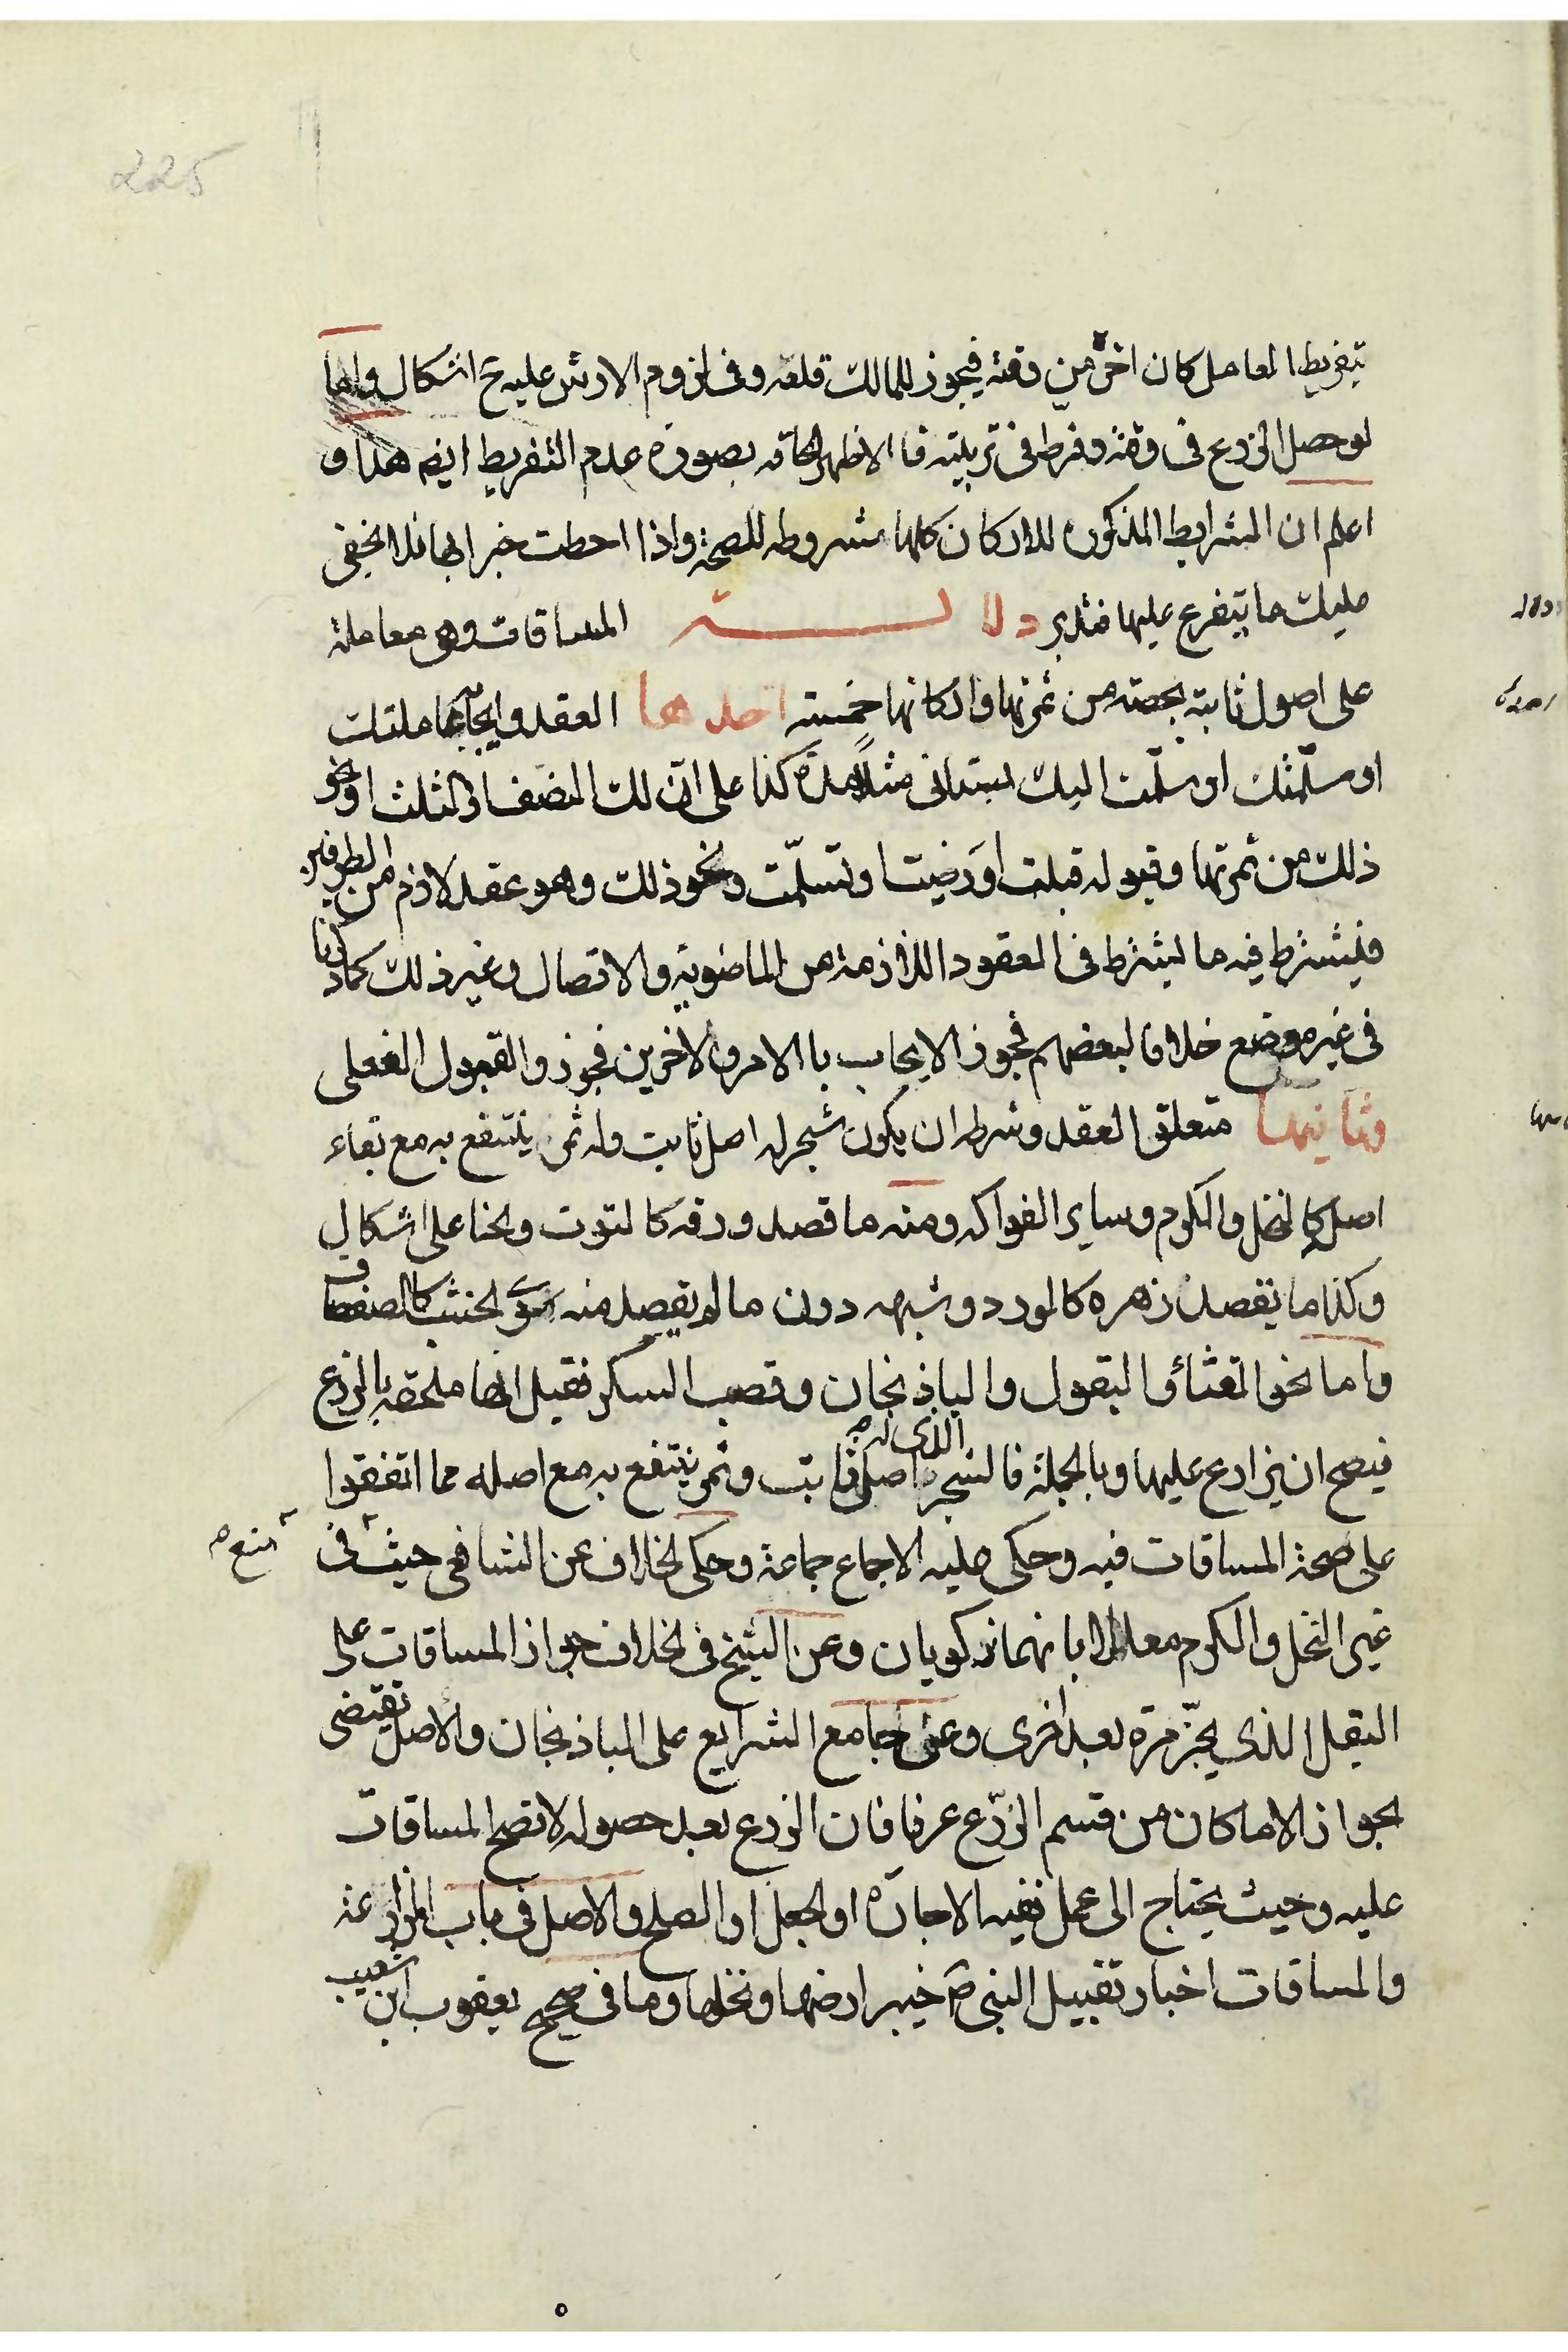 225
بتفريط العامل كان اخره من وقته فيجوز للمالك قلعه وفى لزوم الارش عليه ح اشكال واما
لو حصل الزرع فى وقته وفرط فى تربيته فا الاظهر الحاقه بصورة عدم التفريط ايضا هذا و
اعلم ان الشرايط المذكوره للاركان كلها مشروطه للصحة واذا احطت خبرا بها فلا يخفى
عليك ما يتفرع عليها فتدبر دلالــــــة المساقات وهى معاملة
على اصول ثابتة بحصته من ثمرتها واركانها خمسته احدها العقد وايجابها عاملتك
او سلّمتك او سلّمت اليك بستانى مثلا مدة كذا على انّ لك النصف او الثلث او نحو
ذلك من ثمرتها وقبوله قبلت او رضيت او تسلّمت ونحو ذلك وهو عقد لازم من الطرفين
فيشترط فيه ما ليشترط فى العقود اللازمة من الماضوية والاتصال وغير ذلك كما مر
فى غير موضع خلافا لبعضهم فجوز الايجاب با الامر والاخرين فجوز والقبول الفعلى
وثانيها متعلق العقد وشرطه ان يكون شجر له اصل ثابت وله ثمر ينتفع به مع بقاء
اصله كالنخل والكرم وساير الفواكه ومنه ما قصد ورقه كالتوت والحنا على اشكال
وكذا ما يقصد زهره كالورد وشبهه دون ما لم يقصد منه سوى الخشب كالصفصاف
واما نحو القثاء والبقول والباذنجان وقصب السكر فقيل انها ملحقه بالزرع
فيصح ان يزارع عليها وبالجملة فالشجر الذى له اصل ثابت وثمر ينتفع به مع اصله مما اتفقوا
على صحة المساقات فيه وحكى عليه الاجماع جماعة وحكى الخلاف عن الشافعى حيث فى
منع
غير النخل والكرم معللا بانهما زكويان وعن الشيخ فى الخلاف جواز المساقات على
البقل الذى يجزّ مرة بعد اخرى وعن جامع الشرايع على الباذنجان والاصل يقتضى
الجواز الا ما كان من قسم الزرع عرفا فان الزرع بعد حصوله لا تصح المساقات
عليه وحيث يحتاج الى عمل ففيه الاجارة او الجعل او الصلح والاصل فى باب المزارعة
والمساقات اخبار تقبيل النبى ص خيبر ارضها ونخلها وما فى صحيح يعقوب ابن شعيب